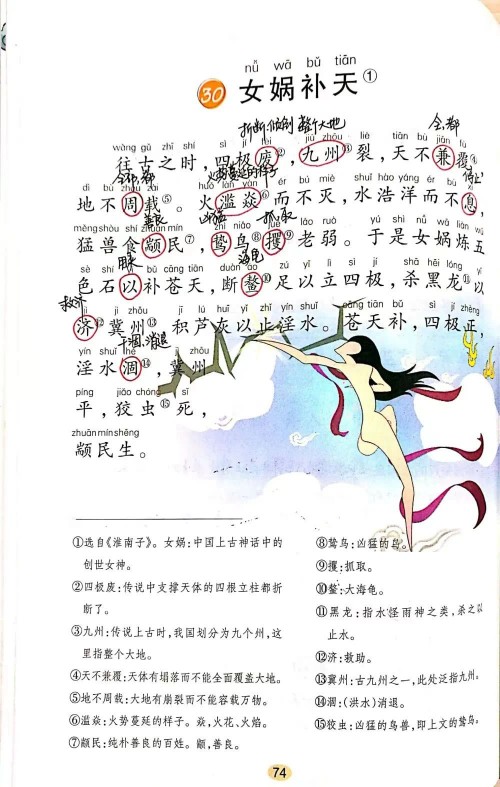 nǚ wā bǔ tiān
30 女娲补天①
折断、倾倒 整个大地 全、都
wàng gǔ zhī shí sì jí fèi jiǔ zhōu liè tiān bù jiān fù
往古之时，四极废②，九州③裂，天不兼覆④，
全部、都 火势蔓延的样子 停止
dì bù zhōu zài huǒ làn yàn ér bù miè shuǐ hào yáng ér bù xī
地不周载⑤。火滥焱⑥而不灭，水浩洋而不息，
善良 凶猛 抓取
měng shòu shí zhuān mín zhì niǎo jué lǎo ruò yú shì nǚ wā liàn wǔ
猛兽食颛民⑦，鸷鸟⑧攫⑨老弱。于是女娲炼五
用来 海龟
sè shí yǐ bǔ cāng tiān duàn áo zú yǐ lì sì jí shā hēi lóng yǐ
色石以补苍天，断鳌⑩足以立四极，杀黑龙⑪以
救济
jì jì zhōu jī lú huī yǐ zhǐ yín shuǐ cāng tiān bǔ sì jí zhèng
济⑫冀州⑬，积芦灰以止淫水。苍天补，四极正，
干涸、消退
yín shuǐ hé jì zhōu
淫水涸⑭，冀州
píng jiǎo chóng sǐ
平，狡虫⑮死，
zhuān mín shēng
颛民生。
①选自《淮南子》。女娲：中国上古神话中的
创世女神。
②四极废：传说中支撑天体的四根立柱都折
断了。
③九州：传说上古时，我国划分为九个州，这
里指整个大地。
④天不兼覆：天体有塌落而不能全面覆盖大地。
⑤地不周载：大地有崩裂而不能容载万物。
⑥滥焱：火势蔓延的样子。焱，火花、火焰。
⑦颛民：纯朴善良的百姓。颛，善良。
⑧鸷鸟：凶猛的鸟。
⑨攫：抓取。
⑩鳌：大海龟。
⑪黑龙：指水怪雨神之类，杀之以
止水。
⑫济：救助。
⑬冀州：古九州之一，此处泛指九州。
⑭涸：(洪水)消退。
⑮狡虫：凶猛的鸟兽，即上文的鸷鸟、
74